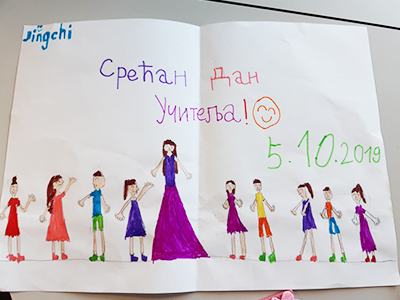 Jingchi
Срећан Дан
Учитеља!
5.10.2019